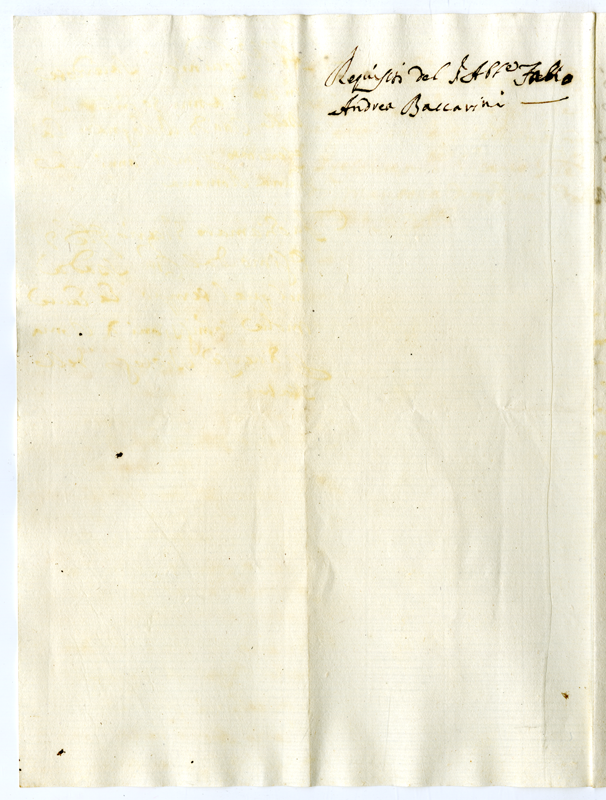 Requisiti del Sr Abte Fabio
Andrea Baccarini